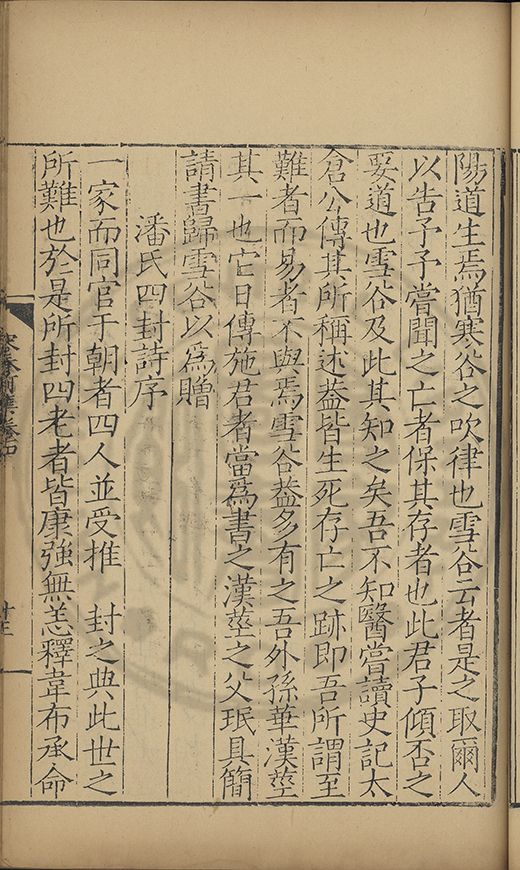 陽道生焉猶寒谷之吹律也雪谷云者是之取爾人
以告予予嘗聞之亡者保其存者也此君子傾否之
要道也雪谷及此其知之矣吾不知醫嘗讀史記太
倉公傳其所稱述葢皆生死存亡之跡即吾所謂至
難者而易者不與焉雪谷葢多有之吾外孫華漢莖
其一也它日傳施君者當爲書之漢莖之父珉具簡
請書歸雪谷以爲贈
潘氏四封詩序
一家而同官于朝者四人並受推 封之典此世之
所難也於是所封四老者皆康強無恙釋韋布承命